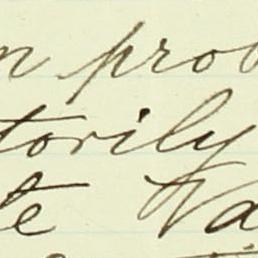 n prob
torily
te Va